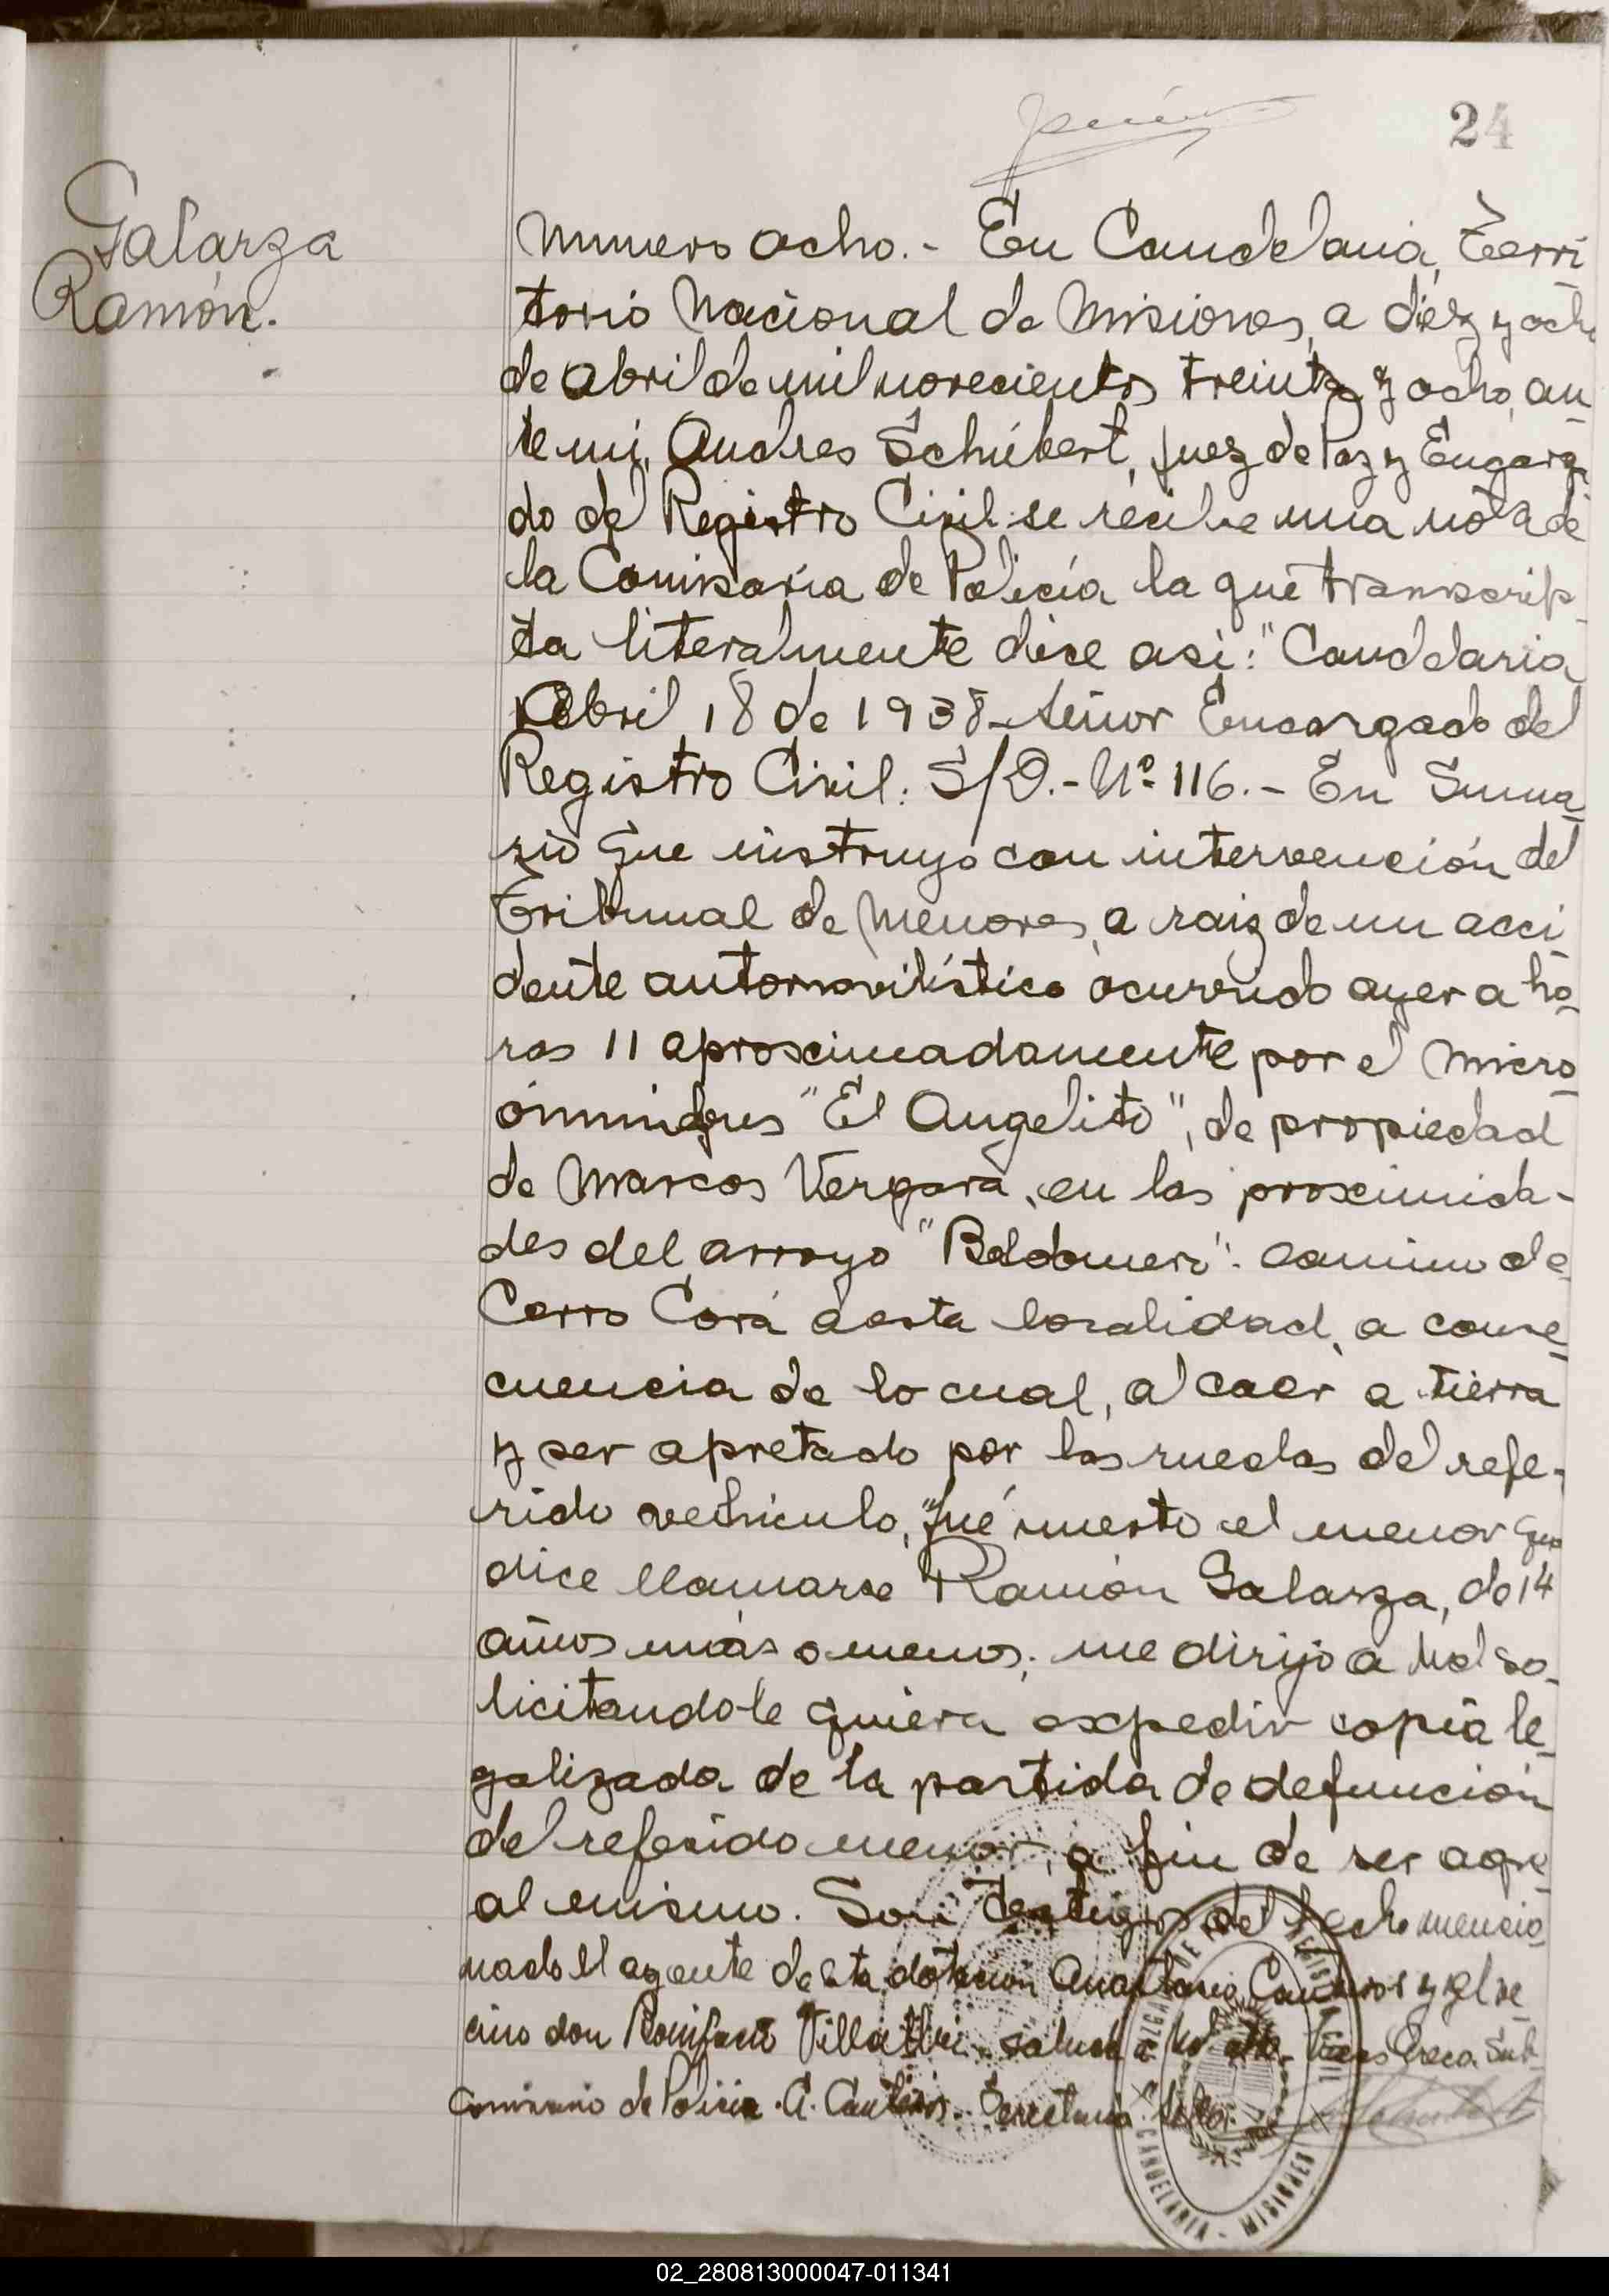 24
Galarza
Ramón.
Numero ocho.- En Candelaria, Terri
torio Nacional de Misiones, a diez y ocho
de abril de mil novecientos treinta y ocho, an-
te mi, Andres Schubert, Juez de Paz y Engarga
do del Registro Civil se recibe una nota de
la Comisaria de Policía la que transcrip-
ta literalmente dice asi: "Candelaria
Abril 18 de 1938. Señor Encargado del
Registro Civil: S/D.- Nº 116.- En Suma-
rio que instruyo con intervención del
Tribunal de Menores, a raiz de un acci-
dente automovilístico ocurrido ayer a ho-
ras 11 aproximadamente por el micro-
ómnibus "El Angelito", de propiedad
de Marcos Vergara, en las proximida-
des del arroyo "Baldomero" camino de
Cerro Corá a esta localidad, a conse-
cuencia de lo cual, al caer a tierra
y ser apretado por las ruedas del refe-
rido vechiculo, fué muerto el menor que
dice llamarse Ramón Galarza, de 14
años más o menos; me dirijo a Ud so-
licitandole quiera expedir copia le-
galizada de la partida de defunción
del referido menor, a fin de ser agre-
al mismo. Son testigos del hecho mencio-
nado el agente de esta dotación Anastasio y el ve-
cino don Bonifacio saluda a Ud atte. Sub-
Comisario de Policia. A. Secretario.
CANDELARIA - MISIONES
02_280813000047-011341